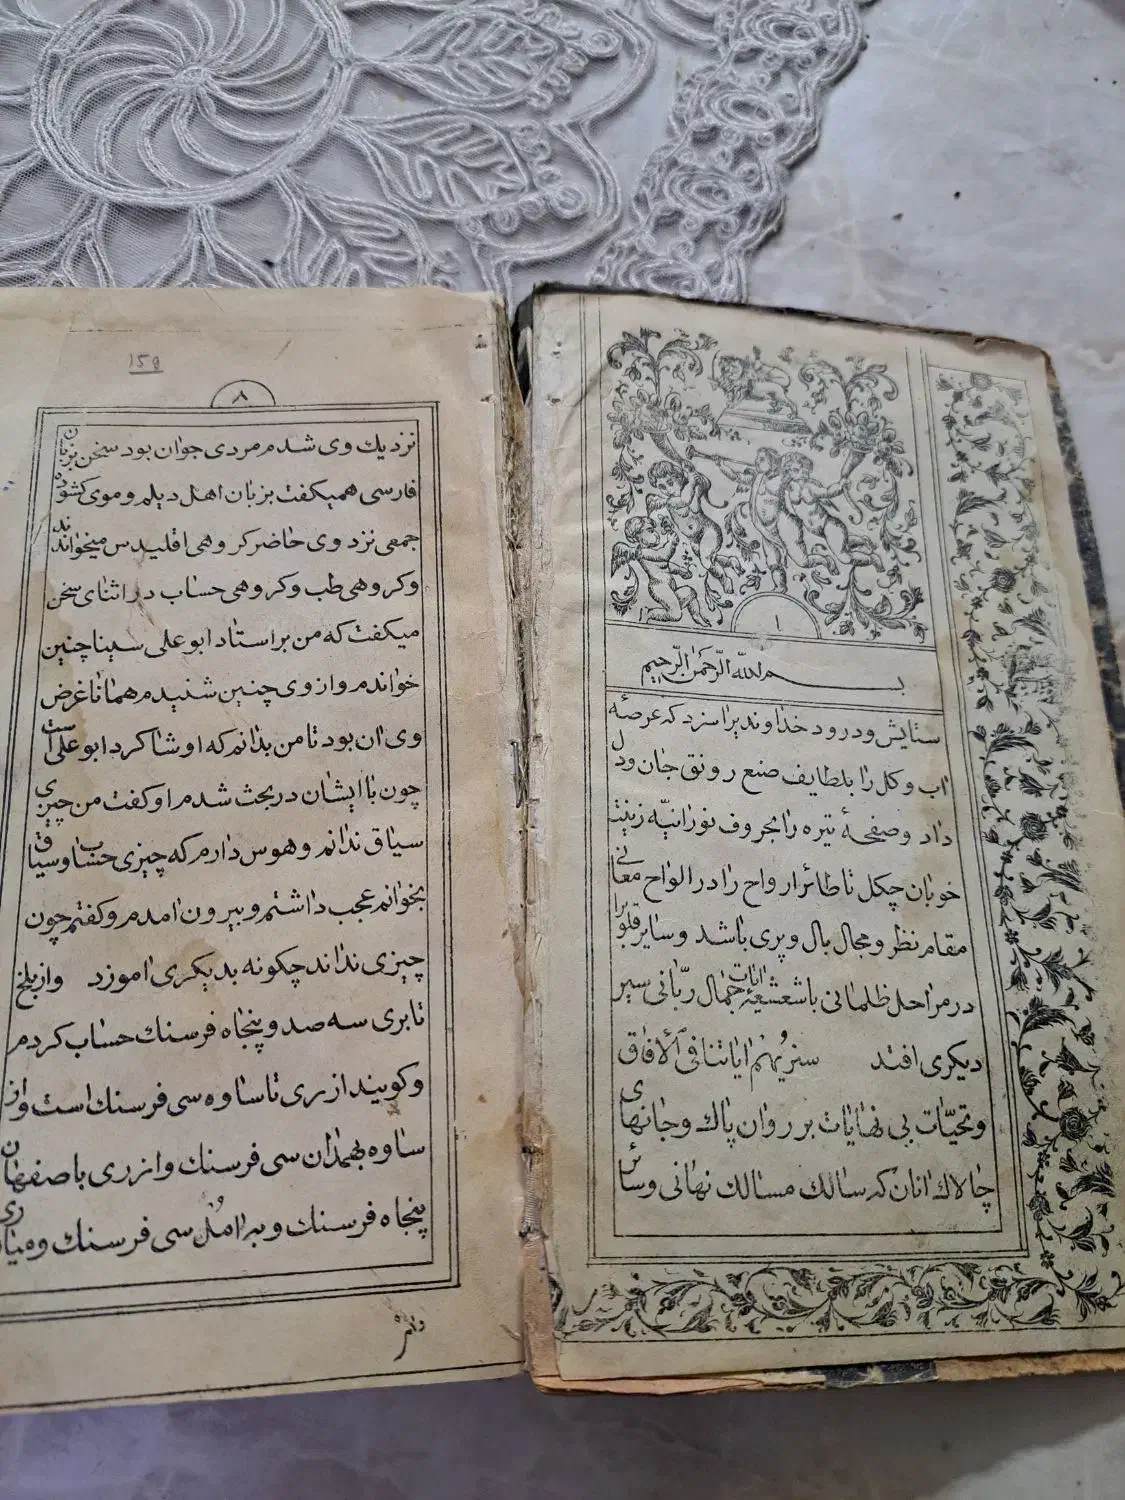 ۱
بسم الله الرّحمن الرّحیم
ستایش و درود خداوندیرا سزد که عرصهٔ
اب و کل را بلطایف صنع رونق جان ودل
داد وصفحهٔ تیره را بحروف نورانیّه زینت
خوبان چکل تا طائر ارواح را در الواح معانی
مقام نظر و مجال بال و پری باشد وسایر قلوبرا
در مراحل ظلمانی باشعشعهٔ ایات جمال ربّانی سیر
دیکری افتد سنریهم ایاتنا فی الافاق
وتحیّات بی نهایات بر روان پاك وجانهای
چالاك انان که سالك مسالك نهانی وسائر
150
۸
نزدیك وی شدم مردی جوان بود سخن بزبان
فارسی همیکفت بزبان اهل دیلم و موی کشوده
جمعی نزد وی حاضر کروهی اقلیدس میخواندند
وکروهی طب وکروهی حساب در اثنای سخن
میکفت که من بر استاد ابو علی سینا چنین
خواندم و از وی چنین شنیدم همانا غرض
وی ان بود تا من بدانم که او شاکرد ابو علی است
چون با ایشان در بحث شدم او کفت من چیزی
سیاق ندانم و هوس دارم که چیزی حساب وسیاق
بخوانم عجب داشتم و بیرون امدم و کفتم چون
چیزی نداند چکونه بدیکری اموزد واز بلخ
تا بری سه صد و پنجاه فرسنك حساب کردم
وکویند از ری تا ساوه سی فرسنك است و از
ساوه بهمدان سی فرسنك و از ری باصفهان
پنجاه فرسنك و به امُل سی فرسنك و میان ری